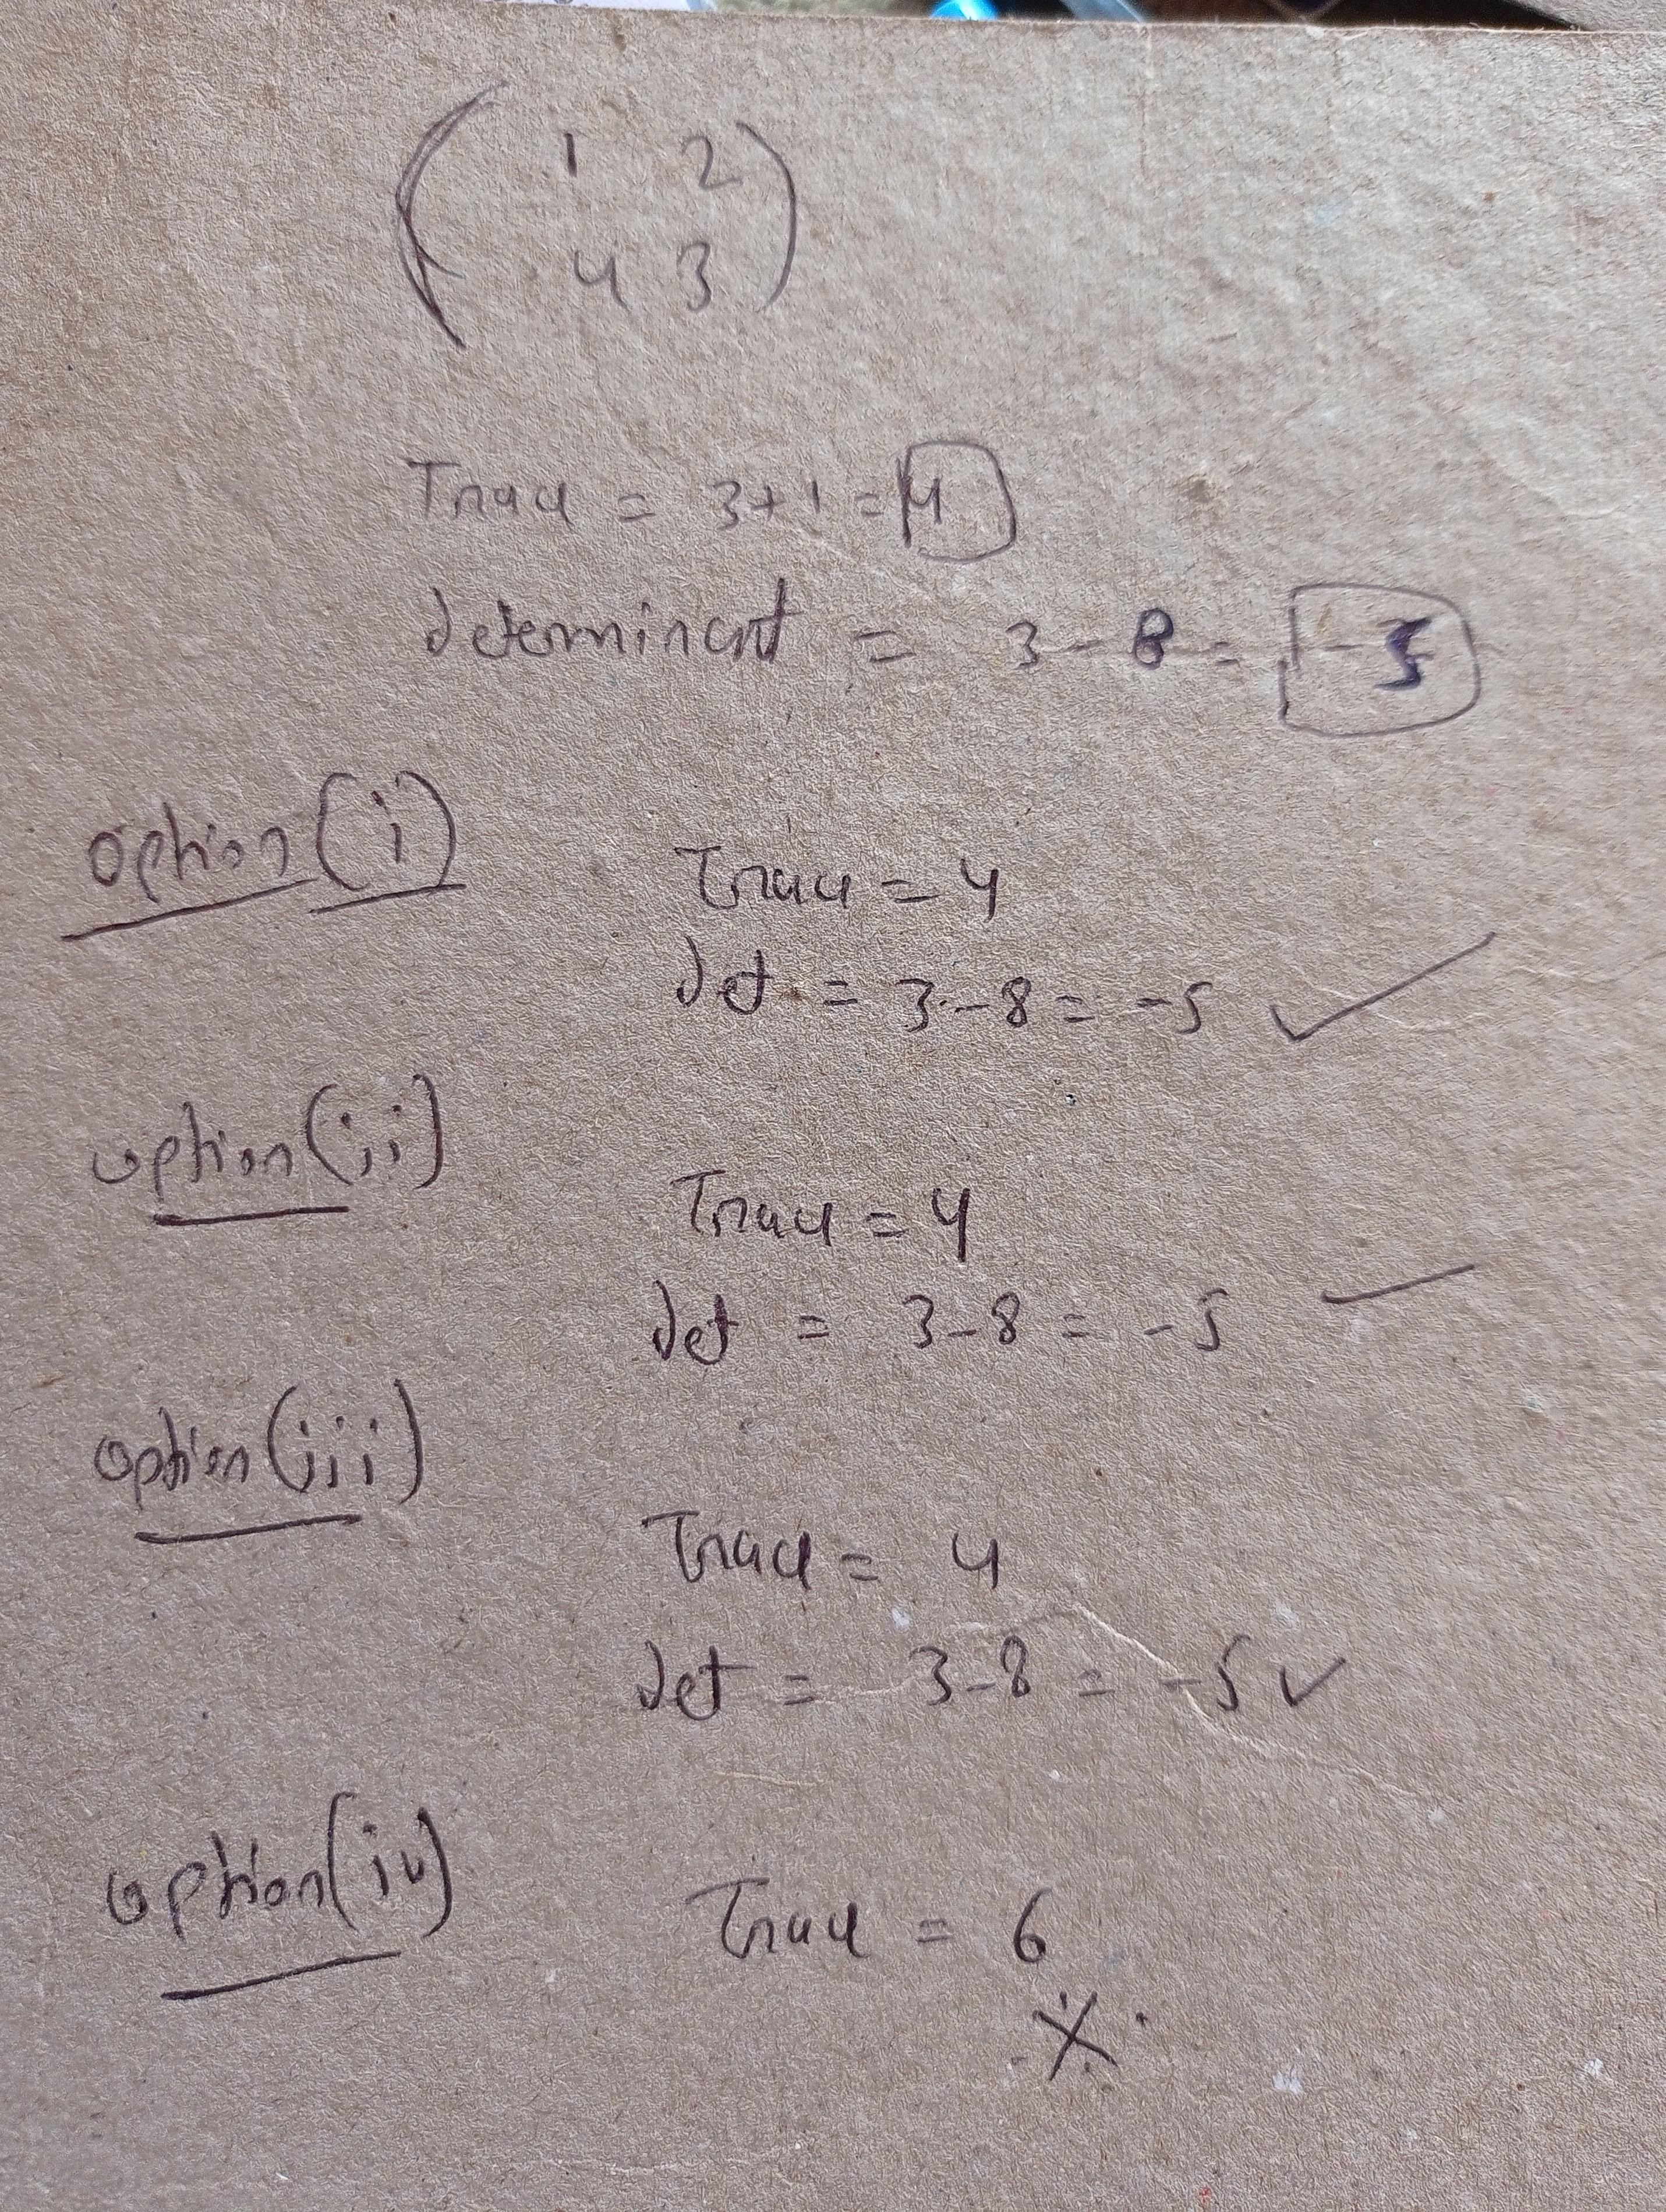 ( 1 2
4 3 )
Trace = 3+1 = 4
determinant = 3 - 8 = -5
option (i)
Trace = 4
det = 3 - 8 = -5 ✓
option (ii)
Trace = 4
det = 3 - 8 = -5
option (iii)
Trace = 4
det = 3 - 8 = -5 ✓
option (iv)
Trace = 6
X